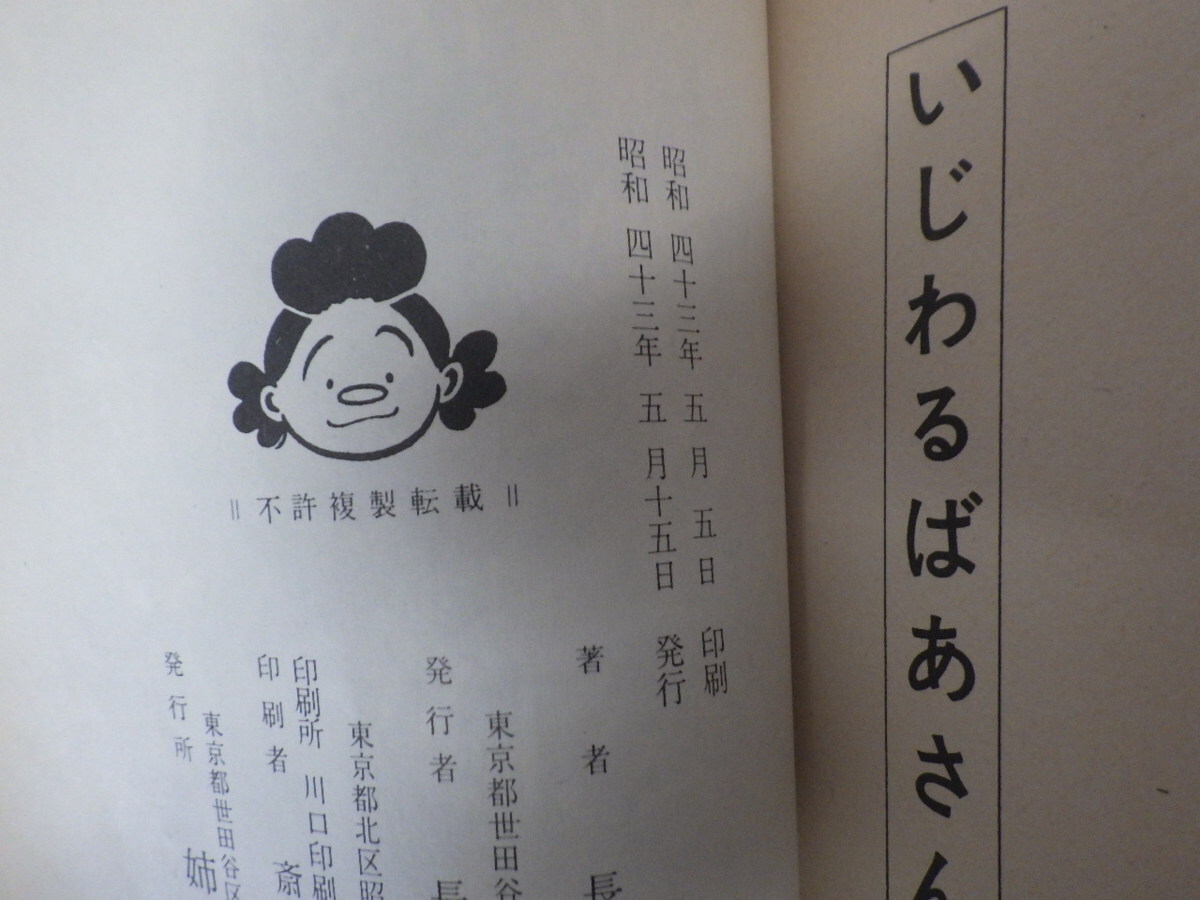 いじわるばあさん
昭和 四十三年 五月 五日 印刷
昭和 四十三年 五月十五日 発行
著者 長
東京都世田谷
発行者 長
東京都北区昭
印刷所 川口印刷
印刷者 斎
東京都世田谷区
発行所 姉
＝不許複製転載＝